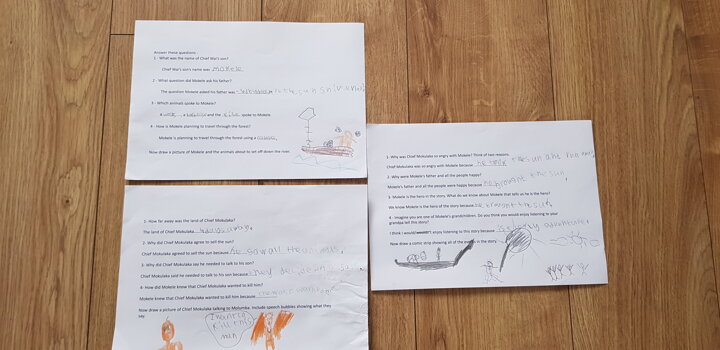 Answer these questions
1 - What was the name of Chief Wai's son?
Chief Wai's son's name was Mokele
2 - What question did Mokele ask his father?
The question Mokele asked his father was the sun
3 - Which animals spoke to Mokele?
A a and the spoke to Mokele.
4 - How is Mokele planning to travel through the forest?
Mokele is planning to travel through the forest using a
Now draw a picture of Mokele and the animals about to set off down the river.
1- How far away was the land of Chief Mokulaka?
The land of Chief Mokulaka away.
2 - Why did Chief Mokulaka agree to sell the sun?
Chief Mokulaka agreed to sell the sun because he saw all the
3- Why did Chief Mokulaka say he needed to talk to his son?
Chief Mokulaka said he needed to talk to his son because
4- How did Mokele know that Chief Mokulaka wanted to kill him?
Mokele knew that Chief Mokulaka wanted to kill him because
Now draw a picture of Chief Mokulaka talking to Molumba. Include speech bubbles showing what they
say.
I want to
kill this
man
1-Why was Chief Mokulaka so angry with Mokele? Think of two reasons.
Chief Mokulaka was so angry with Mokele because he took the sun
2 - Why were Mokele's father and all the people happy?
Mokele's father and all the people were happy because he brought the sun.
3 - Mokele is the hero in the story. What do we know about Mokele that tells us he is the hero?
We know Mokele is the hero of the story because he brought the sun.
4 - Imagine you are one of Mokele's grandchildren. Do you think you would enjoy listening to your
grandpa tell this story?
I think I would/wouldn't enjoy listening to this story because
Now draw a comic strip showing all of the in the story